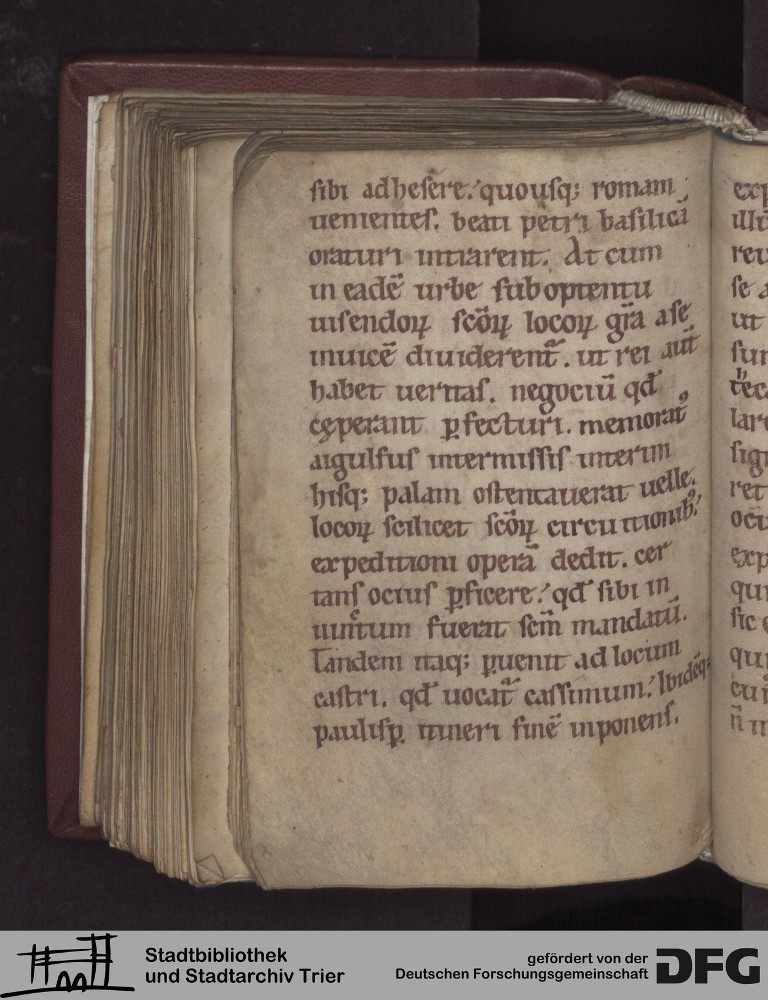 sibi adhesere. quousq; romam
uenientes. beati petri basilicā
oraturi intrarent. At cum
in eadē urbe sub optentu
uisendoꝝ scōꝝ locoꝝ gr̄a a se
inuicē diuiderent᷑. ut rei aut̄
habet ueritas. negociū qđ
cęperant ꝑfecturi. memoratꝰ
aigulfus intermissis interim
hisq; palam ostentauerat uelle.
locoꝝ scilicet scōꝝ circuitionib;
expeditioni operā dedit. cer
tans ocius ꝑficere. qđ sibi in
iunctum fuerat scm̄ mandatū.
Tandem itaq; ꝑuenit ad locum
castri. qđ uocat᷑ cassinum. Ibidēq;
paulisꝑ itineri finē inponens.
exp
illū
reu
se a
ut
sun
lare
sig
ret
ocu
exp
qui
sic
qui
Stadtbibliothek
und Stadtarchiv Trier
gefördert von der
Deutschen Forschungsgemeinschaft
DFG